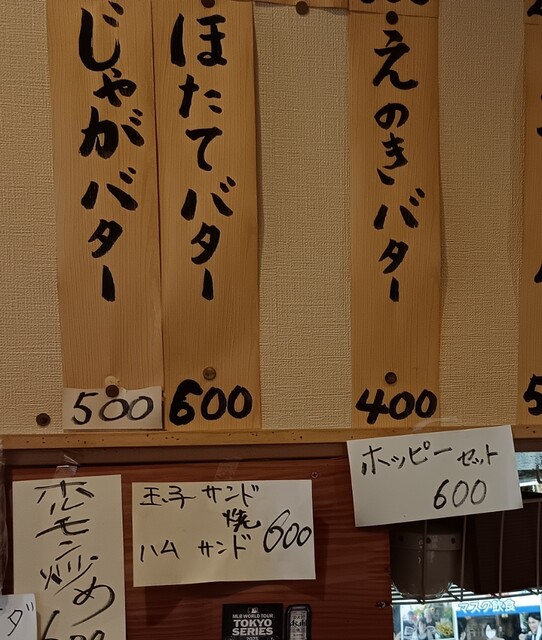 えのきバター
400
ほたてバター
600
じゃがバター
500
ホッピーセット
600
玉子サンド
焼
ハムサンド
600
ホルモン炒め
600
MLB WORLD TOUR
TOKYO
SERIES
2025
マスク飲食